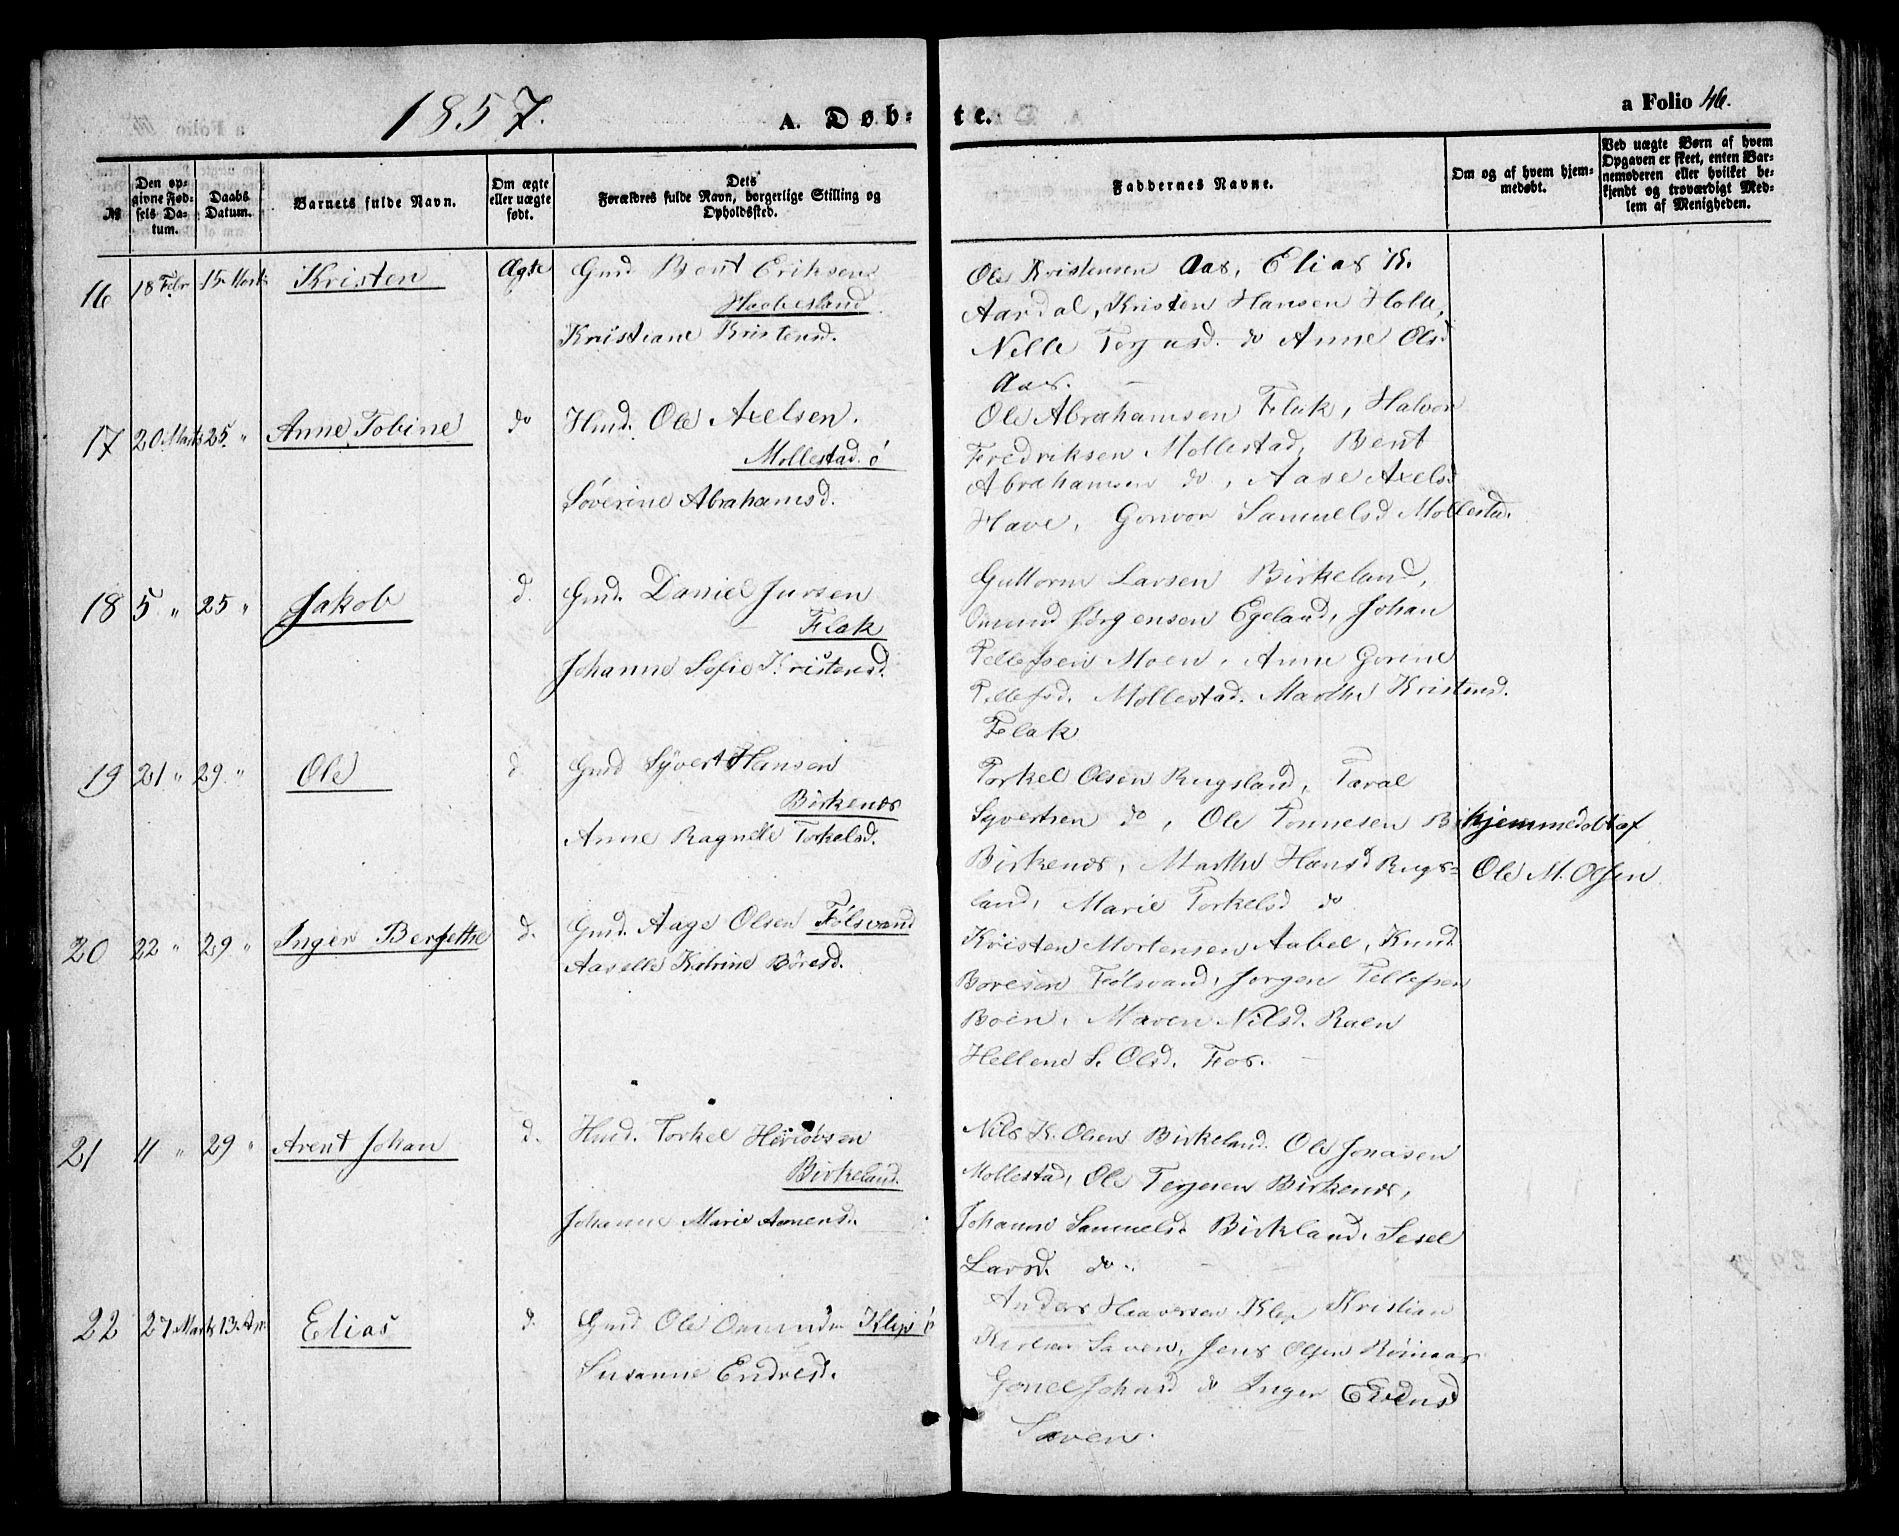 1857.
A. Døb=
te.
a Folio 46.
№
Den op=
givne Fød=
sels Da=
tum.
Daabs
Datum.
Barnets fulde Navn.
Om ægte
eller uægte
født.
Dets
Forældres fulde Navn, borgerlige Stilling og
Opholdssted.
Faddernes Navne.
Om og af hvem hjem=
medøbt.
Ved uægte Børn af hvem
Opgaven er skeet, enten Bar=
nemoderen eller hvilket be=
kjendt og troværdigt Med=
lem af Menigheden.
16 18 Febr 15 Marts Kristen Ægte Gmd Bent Eriksen
Haabesland
Kristiane Kristensd.
Ole Kristensen Aas, Elias K.
Aardal, Kristen Hansen Holte,
Nille Terjusd. do Anne Olsd
Aas.
17 20 Marts 25 " Anne Tobine do Hmd. Ole Axelsen.
Mollestad ø
Søverine Abrahamsd.
Ole Abrahamsen Flak, Halvor
Fredriksen Mollestad, Bent
Abrahamsen do, Aase Axelsd
Have, Gunvor Samuelsd Mollestad.
18 5 " 25 " Jakob d. Gmd. Daniel Jursen
Flak
Johanne Sofie Kristensd.
Guttorm Larsen Birkeland,
Omund Jørgensen Egeland, Johan
Tellefsen Moen, Anne Gorine
Tellefsd. Mollestad. Marthe Kristensd.
Flak
19 21 " 29 " Ole d. Gmd Syvert Hansen
Birkenes
Anne Ragnille Torkelsd.
Torkel Olsen Rugsland, Taral
Syvertsen do, Ole Tonnesen
Birkenes, Marthe Hansd Rugs=
land, Marie Torkelsd do
hjemmedøbt af
Ole M. Olsen
20 22 " 29 " Inger Bergethe d. Gmd. Aage Olsen Følsvand
Aaselle Katrine Børesd.
Kristen Mortensen Aabel, Knud
Boresen Følsvand, Jørgen Tellefsen
Boen, Maren Nilsd. Raen
Hellene S. Olsd. Fos.
21 11 " 29 " Arent Johan d. Hmd. Torkel
Birkeland.
Johanne Marie
Nils K. Olsen Birkeland. Ole Jonasen
Mollestad, Ole Terjesen Birkenes,
Johanne Samuelsd Birkland, Sesel
Larsd. do.
22 27 Marts 13 Apr Elias d. Gmd Ole Omunds Klep ø
Susanne Endresd.
Anders Haaversen Klep Kristian
Saven, Jens Olsen
Gonel Johnsd do Inger
Saven.